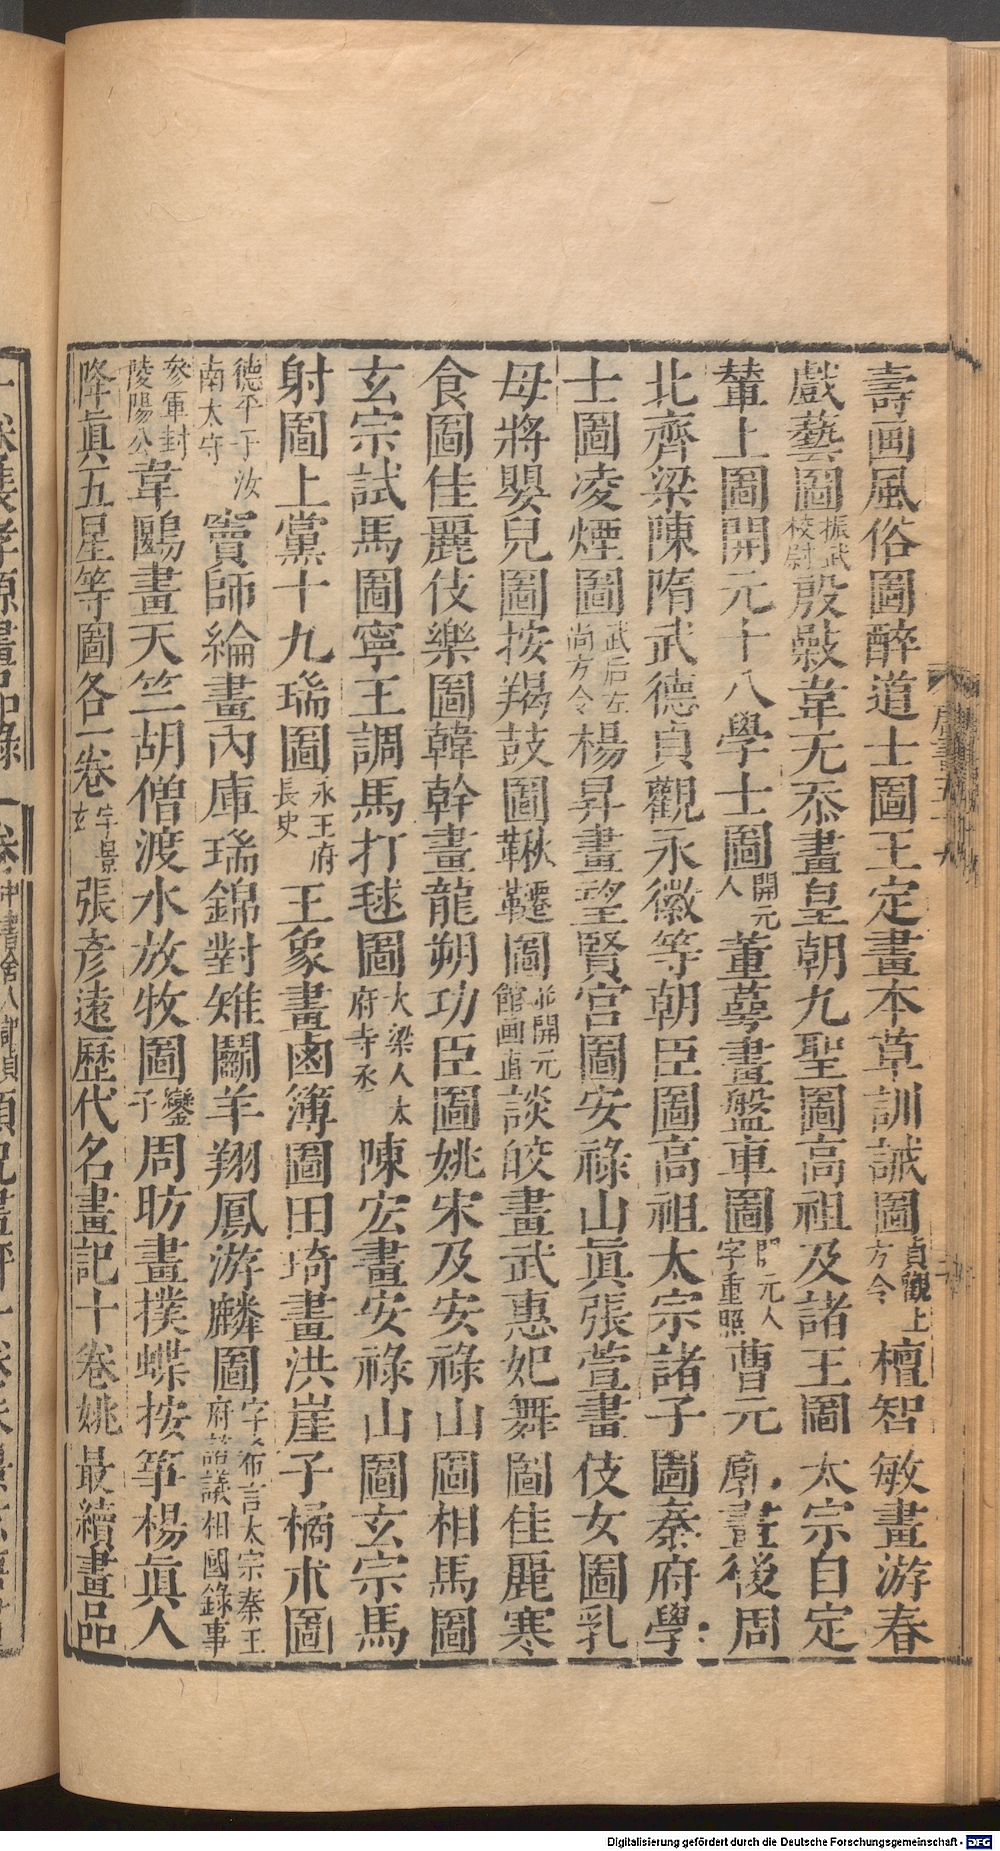 壽画風俗圖醉道士圖王定畫本草訓誡圖貞觀上方令檀智敏畫游春
戲藝圖振武校尉殷𣪘韋无忝畫皇朝九聖圖高祖及諸王圖太宗自定
輦上圖開元十八學士圖開元人董蕚畫盤車圖開元人字重照曹元廓畫後周
北齊梁陳隋武德貞觀永徽等朝臣圖高祖太宗諸子圖秦府學
士圖凌煙圖武后左尚方令楊昇畫望賢宮圖安祿山眞張萱畫伎女圖乳
母將嬰兒圖按羯鼓圖鞦韆圖並開元館画直談皎畫武惠妃舞圖佳麗寒
食圖佳麗伎樂圖韓幹畫龍朔功臣圖姚宋及安祿山圖相馬圖
玄宗試馬圖寧王調馬打毬圖大梁人太府寺丞陳宏畫安祿山圖玄宗馬
射圖上黨十九瑞圖永王府長史王象畫鹵簿圖田琦畫洪崖子橘朮圖
德平子汝南太守竇師綸畫內庫瑞錦對雉鬬羊翔鳳游麟圖字希言太宗秦王府諮議相國錄事
參軍封陵陽公韋鶠畫天竺胡僧渡水放牧圖鑾子周昉畫撲蝶按箏楊眞人
降眞五星等圖各一卷字景玄張彥遠歷代名畫記十卷姚最續畫品
Digitalisierung gefördert durch die Deutsche Forschungsgemeinschaft - DFG